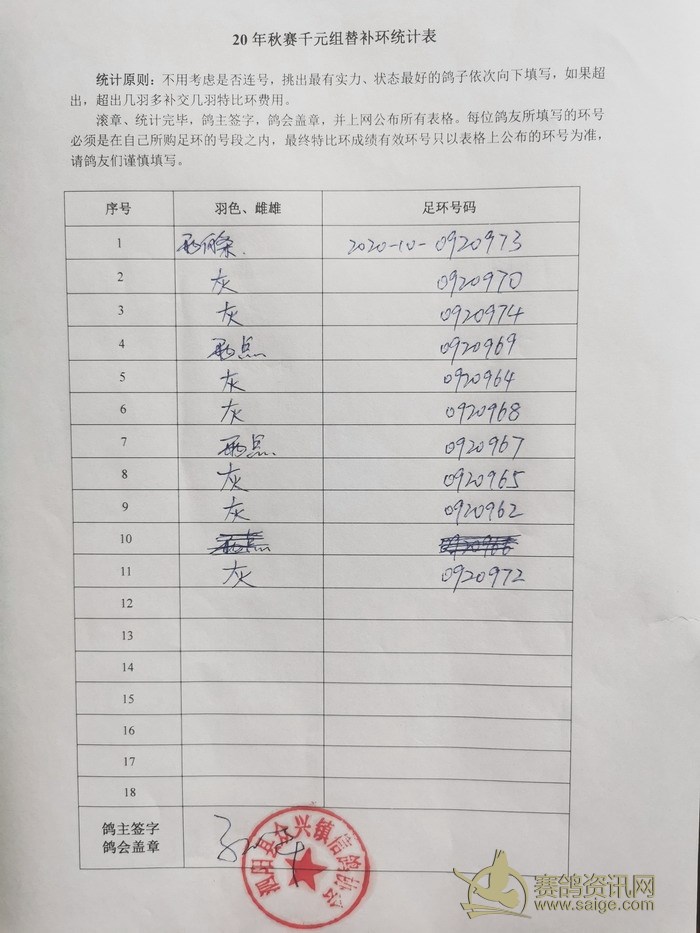 20 年秋赛千元组替补环统计表
统计原则：不用考虑是否连号，挑出最有实力、状态最好的鸽子依次向下填写，如果超
出，超出几羽多补交几羽特比环费用。
滚章、统计完毕，鸽主签字，鸽会盖章，并上网公布所有表格。每位鸽友所填写的环号
必须是在自己所购足环的号段之内，最终特比环成绩有效环号只以表格上公布的环号为准，
请鸽友们谨慎填写。
序号 羽色、雌雄 足环号码
1 2020-10-0920973
2 灰 0920970
3 灰 0920974
4 雨点 0920969
5 灰 0920964
6 灰 0920968
7 雨点. 0920967
8 灰 0920965
9 灰 0920962
10 雨点 0920966
11 灰 0920972
12
13
14
15
16
17
18
鸽主签字
鸽会盖章
泗阳县众兴镇信鸽协会
赛鸽资讯网
www.saige.com